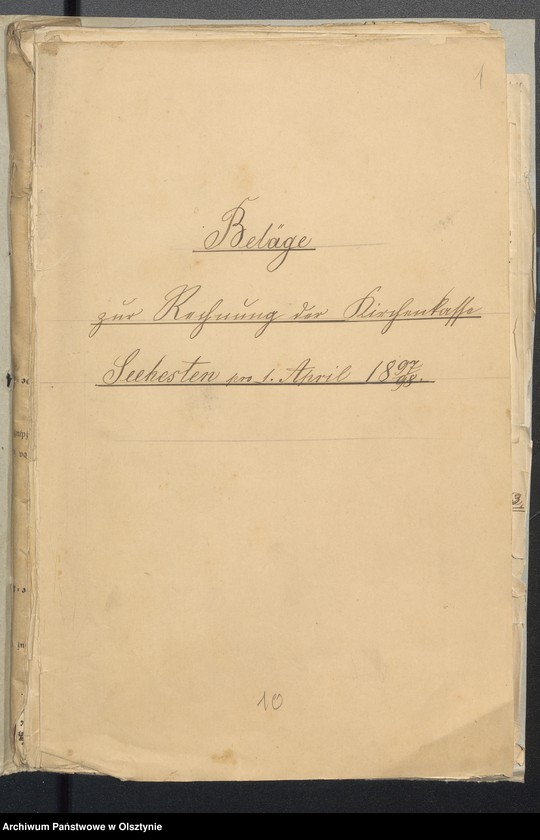 1
Beläge
zur Rechnung der Kirchenkasse
Seehesten pro 1. April 1897/98.
10
Archiwum Państwowe w Olsztynie